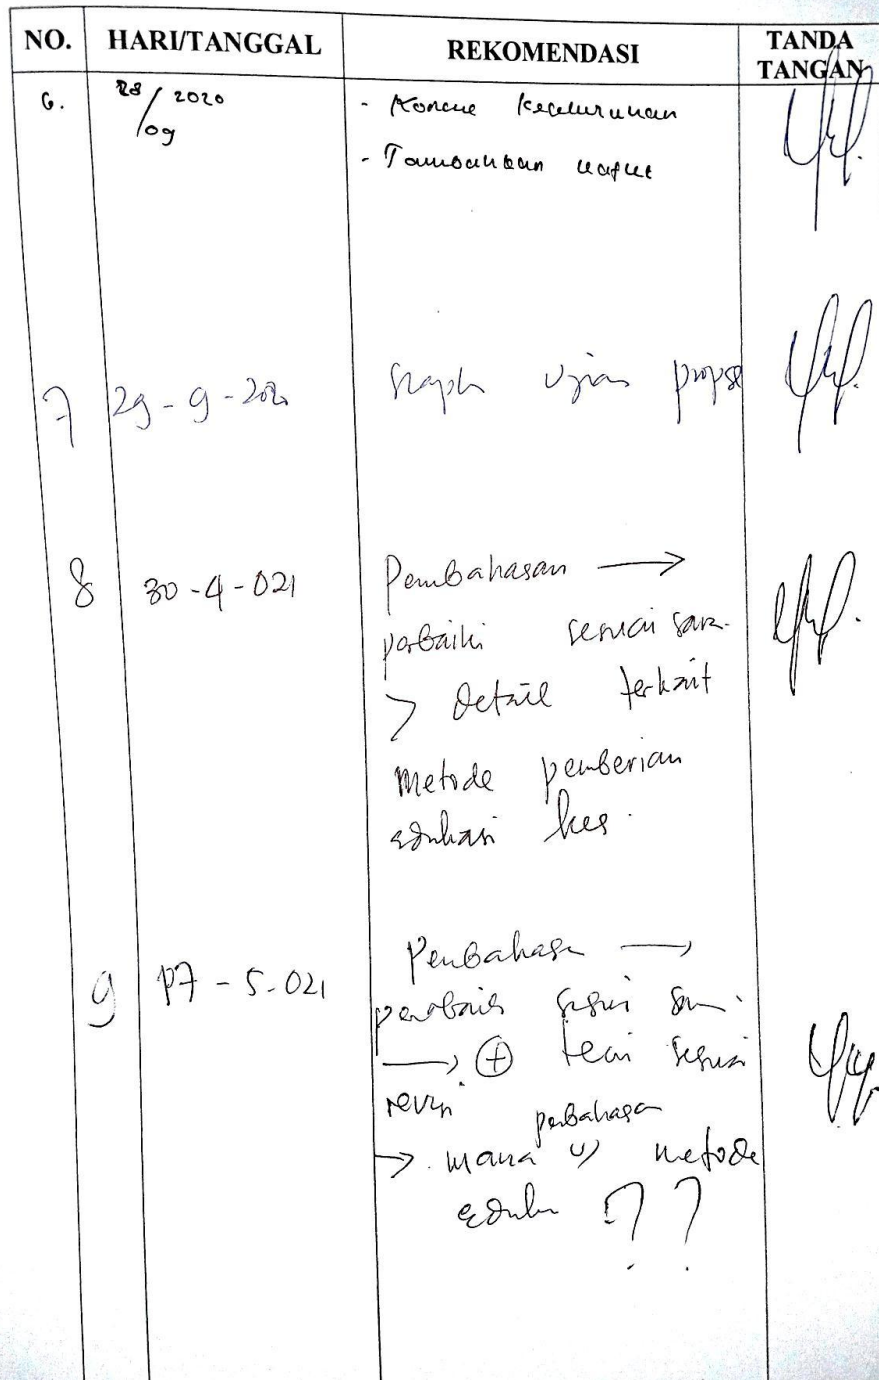 NO. HARI/TANGGAL REKOMENDASI TANDA TANGAN
6. 28/09 2020 - Koncue keseluruhan
- Tambahkan
7 29-9-2020 ujian
8 30-4-021 Pembahasan →
perbaiki sesuai saran
> Detail terkait
Metode pemberian
edukasi kes.
9 -5-021 Pembahasan →
perbaiki sesuai saran
→ ⊕ teori sesuai
revisi pembahasan
→ mana metode
??